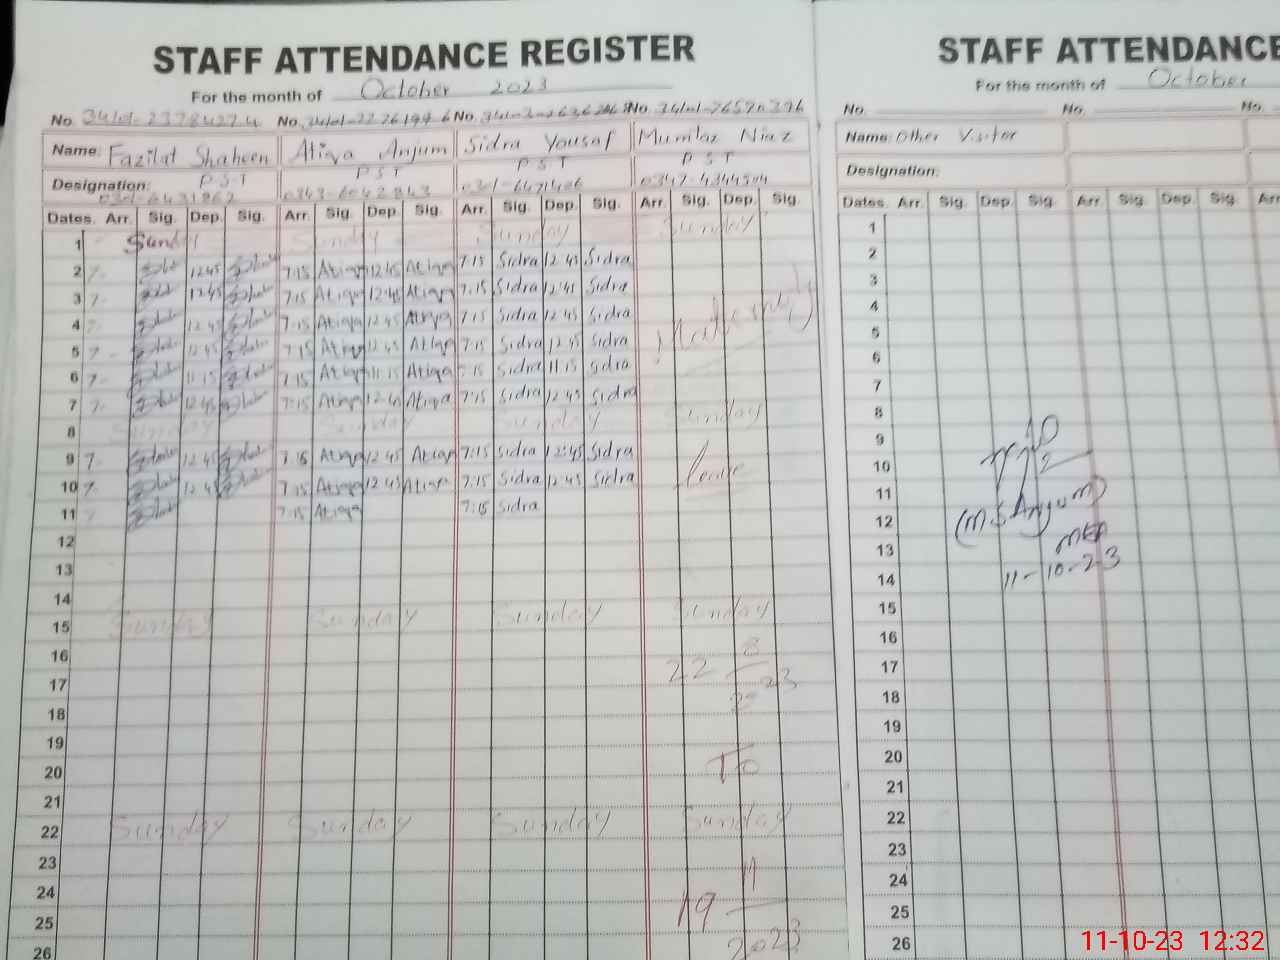 STAFF ATTENDANCE REGISTER
For the month of October 2023
No. No. No. No.
Name: Fazilat Shaheen Atiqa Anjum Sidra Yousaf Mumtaz Niaz
Designation: P S T P S T P S T P S T
Dates. Arr. Sig. Dep. Sig. Arr. Sig. Dep. Sig. Arr. Sig. Dep. Sig. Arr. Sig. Dep. Sig.
1 Sunday Sunday Sunday Sunday
2 7- 12 45 7:15 Atiqa 12 45 Atiqa 7:15 Sidra 12 45 Sidra
3 7- 12 45 7:15 Atiqa 12:45 Atiqa 7:15 Sidra 12:45 Sidra
4 7- 12 45 7:15 Atiqa 12 45 Atiqa 7:15 Sidra 12 45 Sidra
5 7- 12 45 7:15 Atiqa 12 45 Atiqa 7:15 Sidra 12 45 Sidra
6 7- 11 15 7:15 Atiqa 11 15 Atiqa 7:15 Sidra 11 15 Sidra
7 7- 12 45 7:15 Atiqa 12 45 Atiqa 7:15 Sidra 12 45 Sidra
8 Sunday Sunday Sunday Sunday
9 7- 12 45 7 15 Atiqa 12 45 Atiqa 7:15 Sidra 12:45 Sidra
10 7- 12 45 7:15 Atiqa 12 45 Atiqa 7:15 Sidra 12 45 Sidra
leave
11 7:15 Atiqa 7:15 Sidra
12
13
14
15 Sunday Sunday Sunday Sunday
16
17 22 8 23
18
19
20 To
21
22 Sunday Sunday Sunday Sunday
23
24 11
25 19
26 2023
STAFF ATTENDANCE
For the month of October
No. No. No.
Name: Other Visitor
Designation:
Dates. Arr. Sig. Dep. Sig. Arr. Sig. Dep. Sig. Arr
1
2
3
4
5
6
7
8
9
10
11
12 (M.S Anjum)
13 MEA
14 11-10-23
15
16
17
18
19
20
21
22
23
24
25
26
11-10-23 12:32